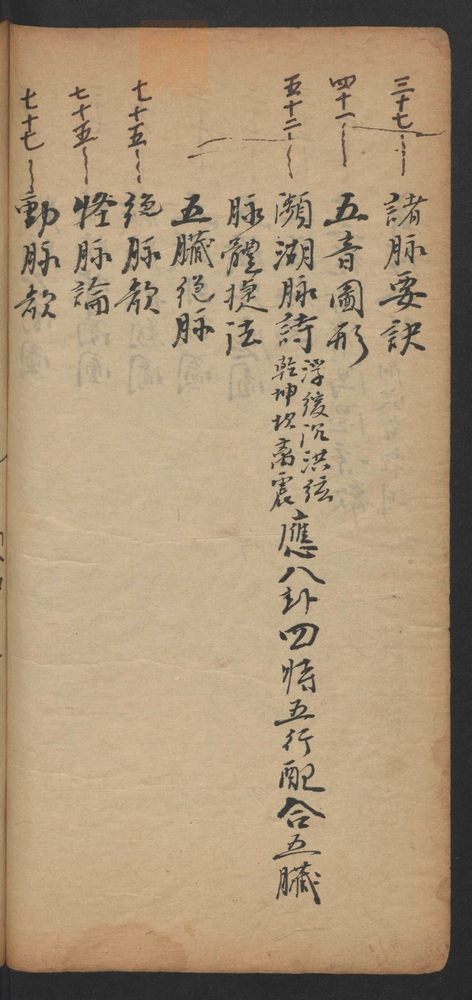 三十七 諸脉要訣
四十一 五音圖形
五十二 瀕湖脉詩 浮緩沉洪弦 乾坤坎离震 應八卦四時五行配合五臟
脉體捷法
五臟绝脉
七十五 绝脉歌
七十五 怪脉論
七十七 動脉歌